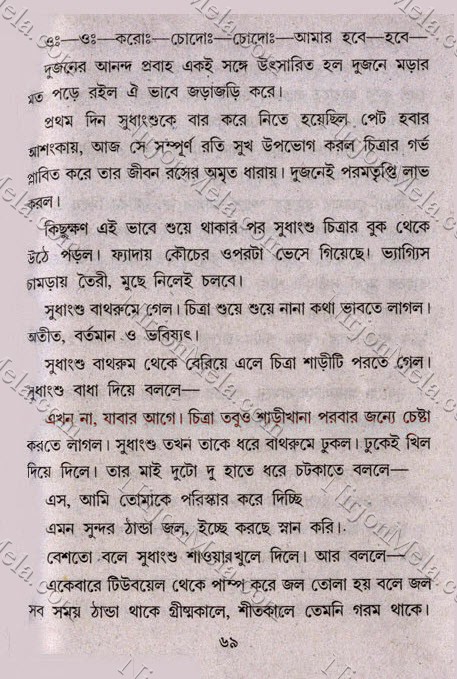 ওঃ—ওঃ—করোঃ—চোদোঃ—চোদোঃ—আমার হবে—হবে—
দুজনের আনন্দ প্রবাহ একই সঙ্গে উৎসারিত হল দুজনে মড়ার
মত পড়ে রইল ঐ ভাবে জড়াজড়ি করে।
প্রথম দিন সুধাংশুকে বার করে নিতে হয়েছিল পেট হবার
আশংকায়, আজ সে সম্পূর্ণ রতি সুখ উপভোগ করল চিত্রার গর্ভ
প্লাবিত করে তার জীবন রসের অমৃত ধারায়। দুজনেই পরমতৃপ্তি লাভ
করল।
কিছুক্ষণ এই ভাবে শুয়ে থাকার পর সুধাংশু চিত্রার বুক থেকে
উঠে পড়ল। ফ্যাদায় কৌচের ওপরটা ভেসে গিয়েছে। ভ্যাগ্যিস
চামড়ায় তৈরী, মুছে নিলেই চলবে।
সুধাংশু বাথরুমে গেল। চিত্রা শুয়ে শুয়ে নানা কথা ভাবতে লাগল।
অতীত, বর্তমান ও ভবিষ্যৎ।
সুধাংশু বাথরুম থেকে বেরিয়ে এলে চিত্রা শাড়ীটি পরতে গেল।
সুধাংশু বাধা দিয়ে বললে—
এখন না, যাবার আগে। চিত্রা তবুও শাড়ীখানা পরবার জন্যে চেষ্টা
করতে লাগল। সুধাংশু তখন তাকে ধরে বাথরুমে ঢুকল। ঢুকেই খিল
দিয়ে দিলে। তার মাই দুটো দু হাতে ধরে চটকাতে বললে—
এস, আমি তোমাকে পরিস্কার করে দিচ্ছি
এমন সুন্দর ঠান্ডা জল, ইচ্ছে করছে স্নান করি।
বেশতো বলে সুধাংশু শাওয়ার খুলে দিলে। আর বললে—
একেবারে টিউবয়েল থেকে পাম্প করে জল তোলা হয় বলে জল
সব সময় ঠান্ডা থাকে গ্রীষ্মকালে, শীতকালে তেমনি গরম থাকে।
৬৯
NirjonMela.com